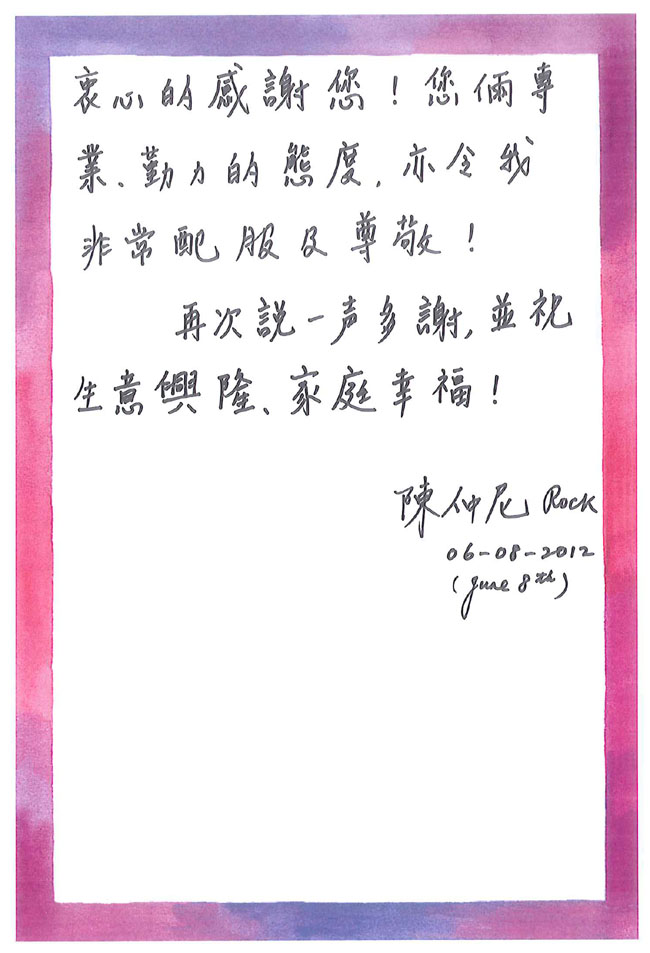 衷心的感謝您！您倆專
業、勤力的態度，亦令我
非常配服及尊敬！
再次説一声多謝，並祝
生意興隆、家庭幸福！
陳仲尼 Rock
06-08-2012
(June 8th)